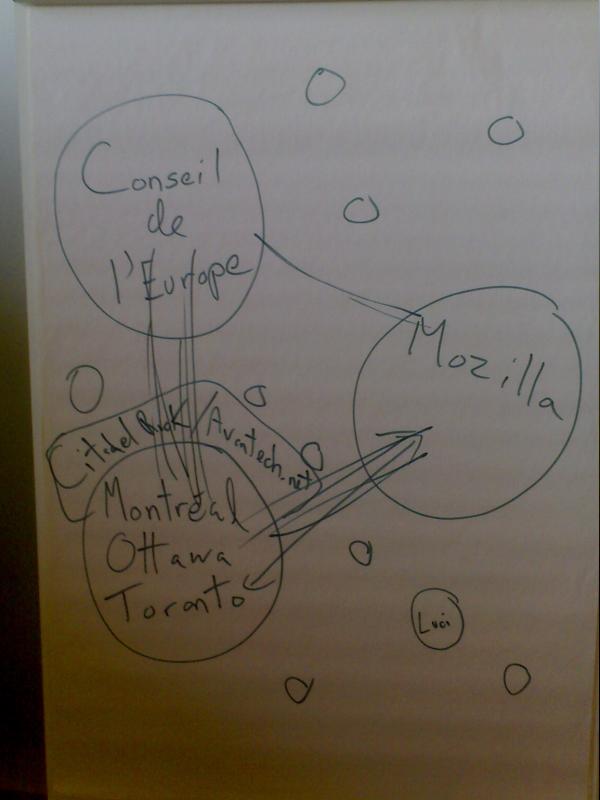 Conseil
de
l'Europe
Mozilla
Citadel Rock / Avantech.net
Montréal
Ottawa
Toronto
Luci